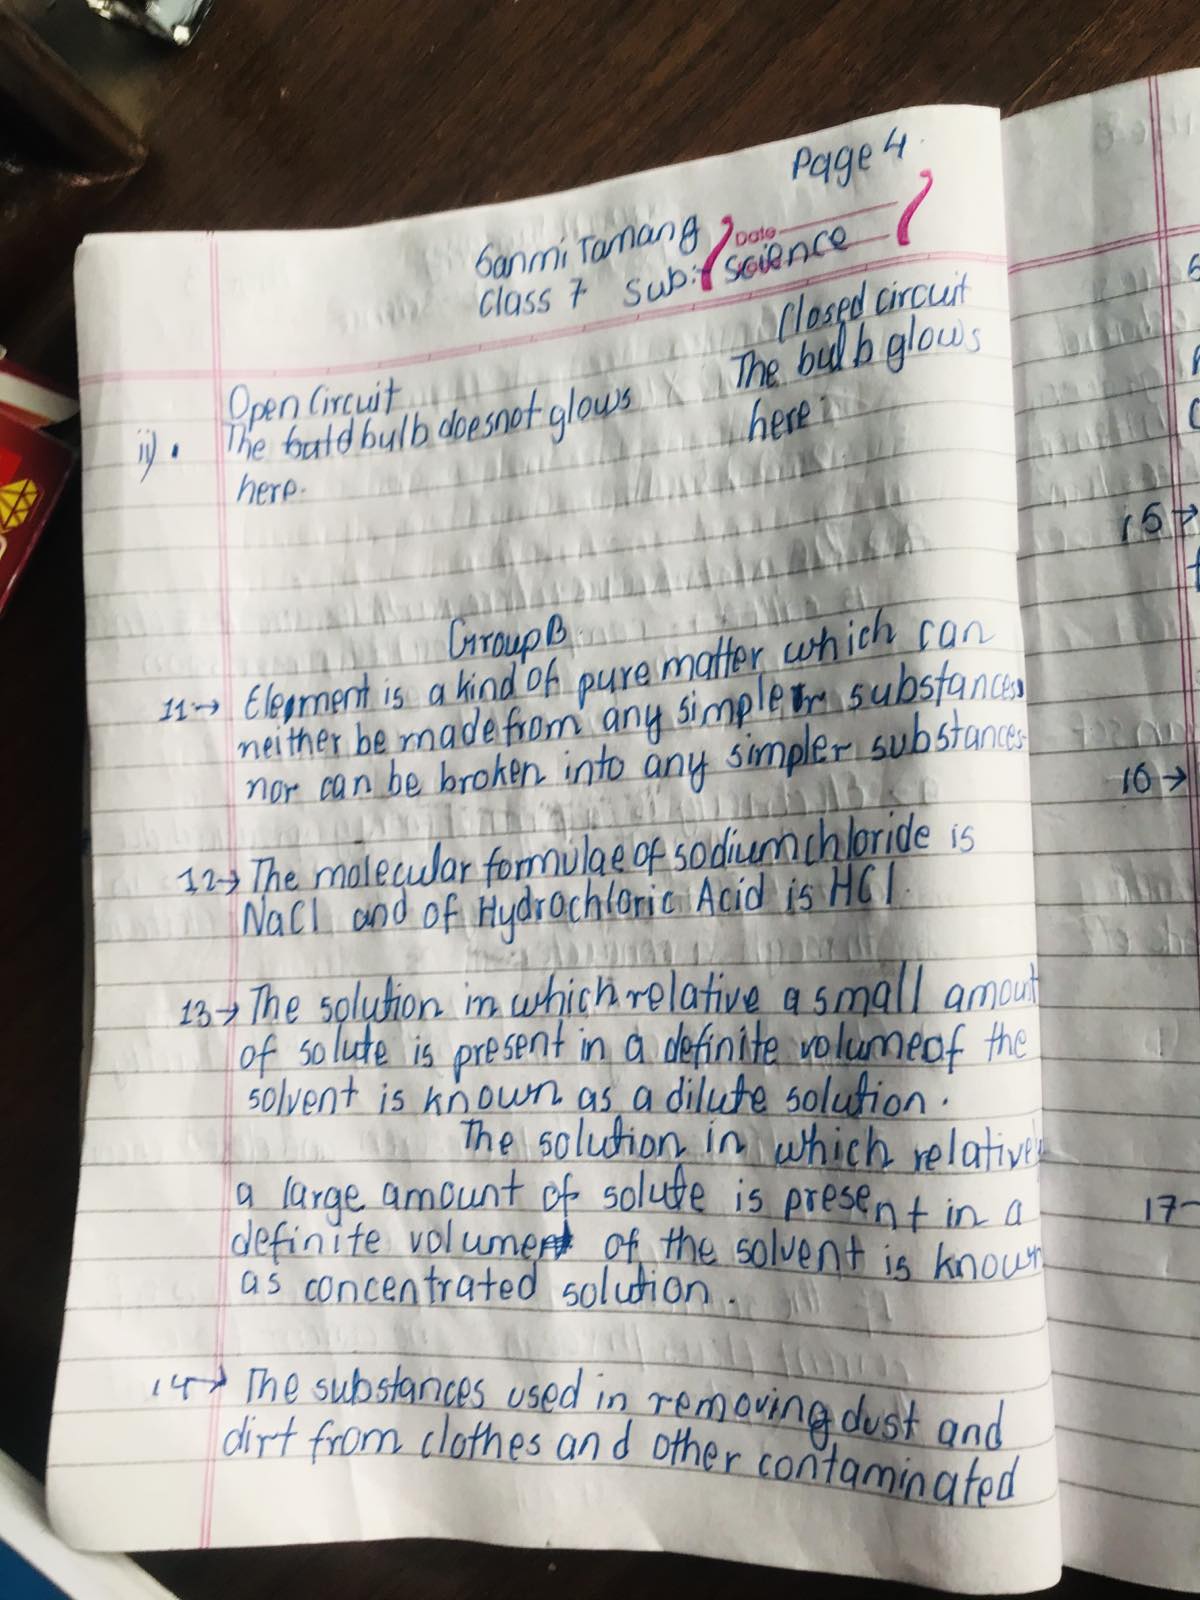 Page 4
Sanmi Tamang
Date
Class 7 Sub:- Science
Open Circuit
Closed circuit
ii). The bulb doesnot glows
here.
The bulb glows
here.
Group B
11→ Element is a kind of pure matter which can
neither be made from any simpler substances
nor can be broken into any simpler substances
12→ The molecular formulae of sodium chloride is
NaCl and of Hydrochloric Acid is HCl.
13→ The solution in which relative a small amount
of solute is present in a definite volume of the
solvent is known as a dilute solution.
The solution in which relatively
a large amount of solute is present in a
definite volume of the solvent is known
as concentrated solution.
14→ The substances used in removing dust and
dirt from clothes and other contaminated
15→
16→
17